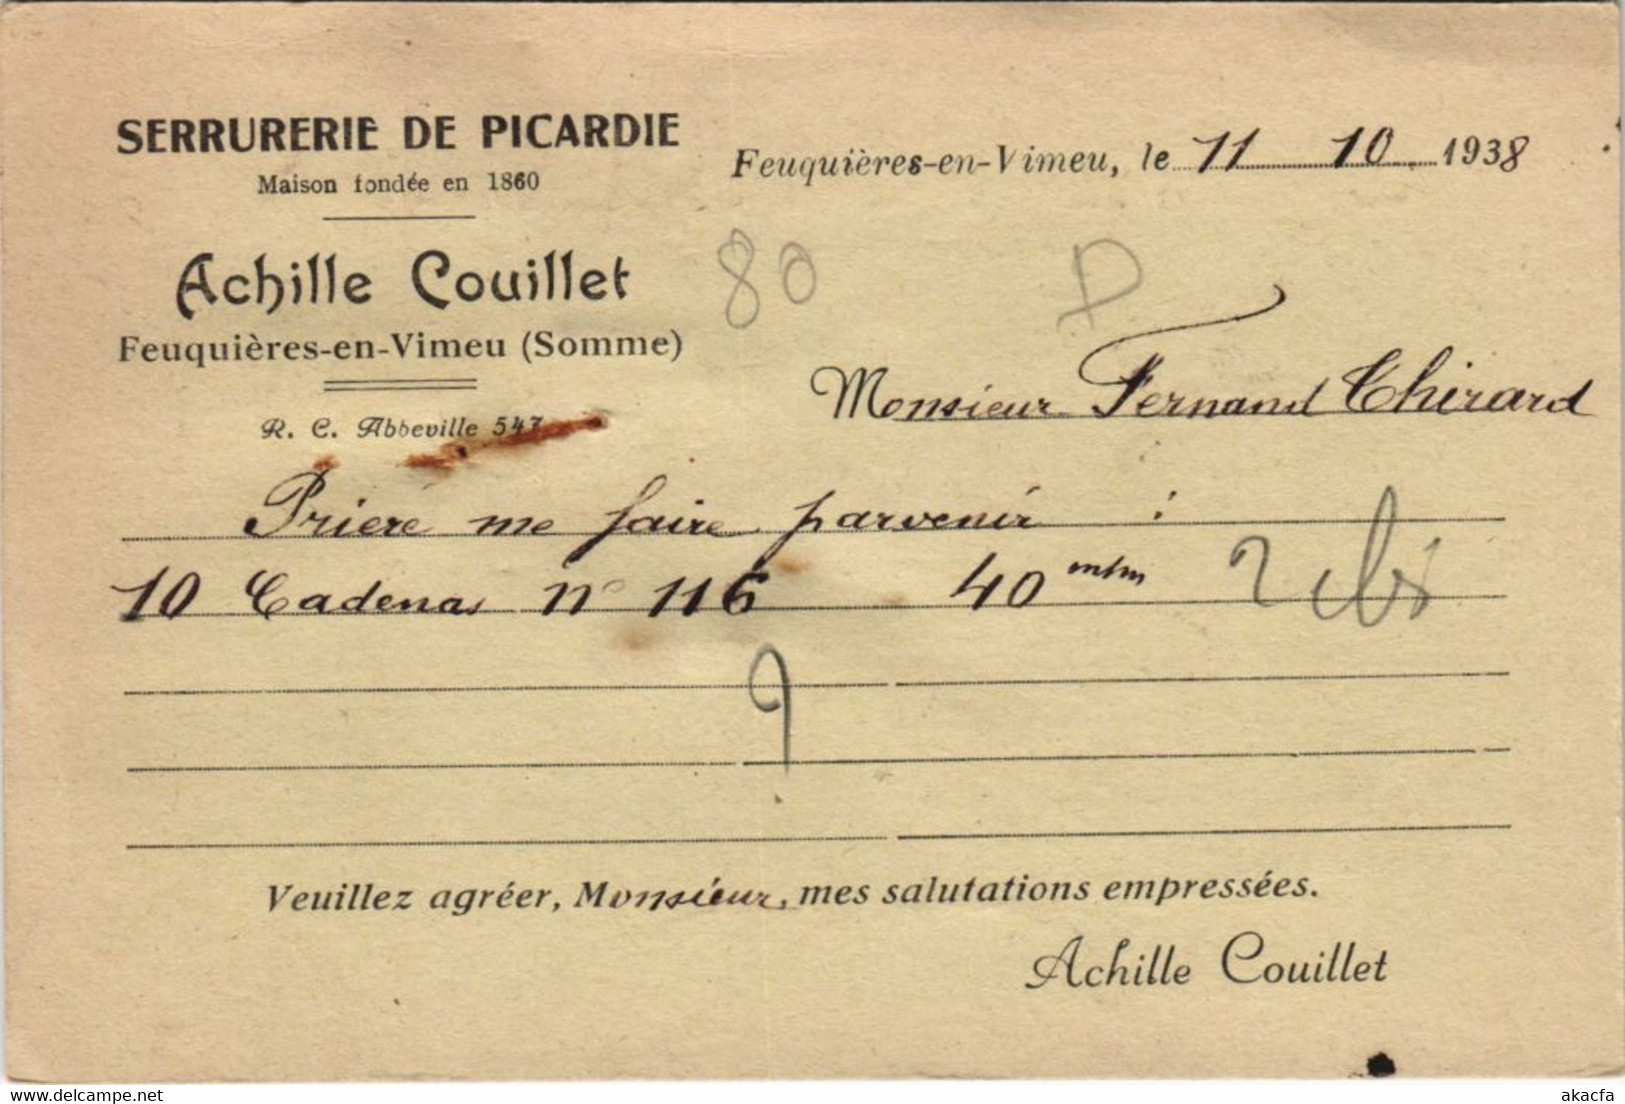 SERRURERIE DE PICARDIE
Maison fondée en 1860
Achille Couillet
Feuquières-en-Vimeu (Somme)
R. C. Abbeville 547
Feuquières-en-Vimeu, le 11 10 1938
80
Monsieur Fernand Thirard
Priere me faire parvenir :
10 Cadenas n° 116 40 m/m
Veuillez agréer, Monsieur, mes salutations empressées.
Achille Couillet
akacfa